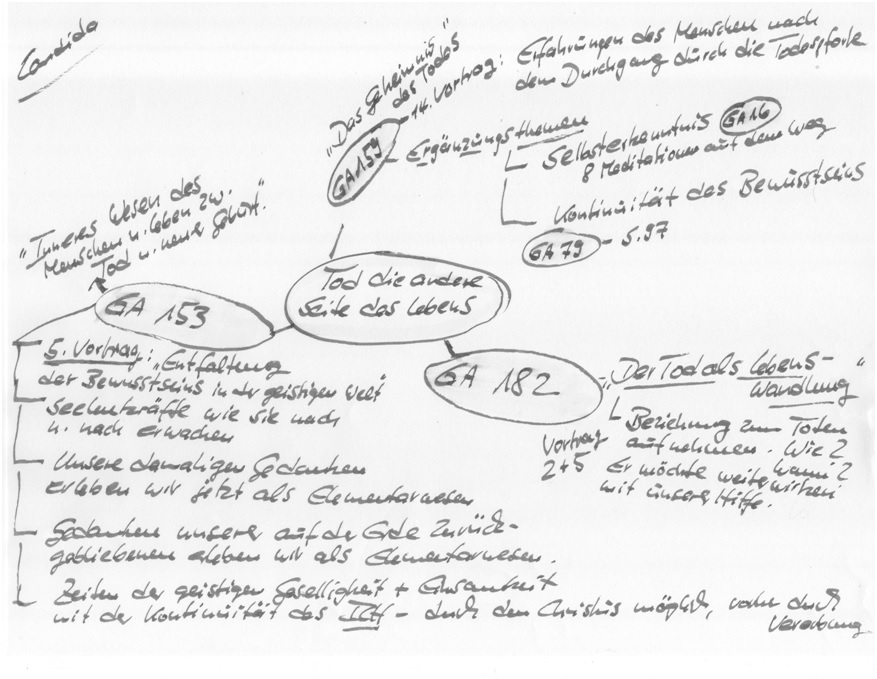 Candida
"Das Geheimnis
des Todes"
14. Vortrag: Erfahrungen des Menschen nach
dem Durchgang durch die Todespforte
GA 159
Ergänzungsthemen
Selbsterkenntnis GA 16
8 Meditationen auf dem Weg
Kontinuität des Bewusstseins
GA 79 - S. 97
"Inneres Wesen des
Menschen u. Leben zw.
Tod u. neuer Geburt."
Tod die andere
Seite des Lebens
GA 153
5. Vortrag: "Entfaltung
der Bewusstseins in der geistigen Welt"
Seelenkräfte wie sie nach
u. nach erwachen
Unsere damaligen Gedanken
erleben wir jetzt als Elementarwesen
Gedanken unserer auf der Erde Zurück-
gebliebenen erleben wir als Elementarwesen.
Zeiten der geistigen Geselligkeit + Einsamkeit
mit der Kontinuität des ICH - durch den Christus möglich, vorher durch
Vererbung
GA 182
"Der Tod als Lebens-
wandlung"
Vortrag
2+5
Beziehung zum Toten
aufnehmen. Wie?
Wann?
Er möchte weiter wirken
mit unserer Hilfe